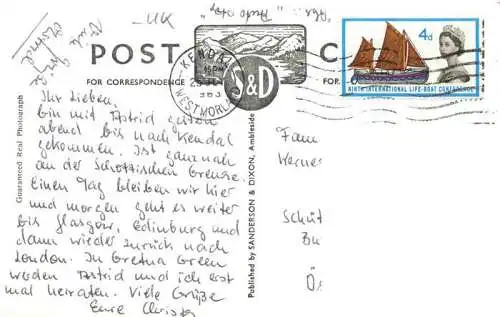 -UK
POST C
FOR CORRESPONDENCE FOR
KENDAL
WESTMORLAND
S&D
4d
NINTH INTERNATIONAL LIFE-BOAT CONFERENCE
Guaranteed Real Photograph
Published by SANDERSON & DIXON, Ambleside
Viele
Grüße
Astrid
Ihr Lieben,
bin mit Astrid gestern
abend bis nach Kendal
gekommen. Ist ganz nah
an der Schottischen Grenze.
Einen Tag bleiben wir hier
und morgen geht es weiter
bis Glasgow, Edinburg und
dann wieder zurück nach
London. In Gretna Green
werden Astrid und ich erst
mal heiraten. Viele Grüße
Eure Christa
Fam
Werner
Schüt
Ös